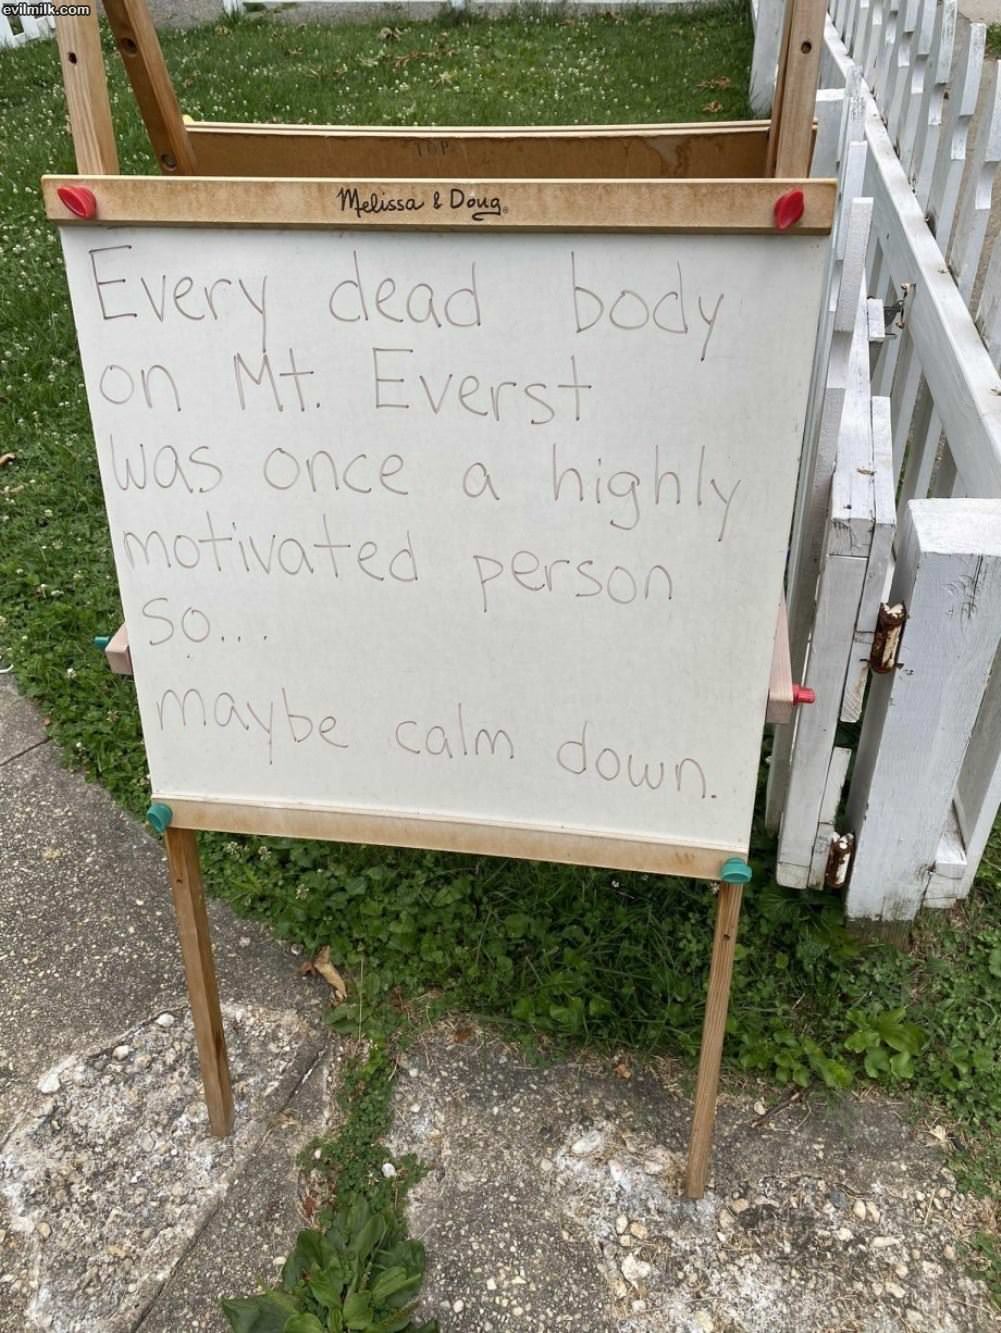 evilmilk.com
TOP
Melissa & Doug
Every dead body
on Mt. Everst
was once a highly
motivated person
so...
maybe calm down.